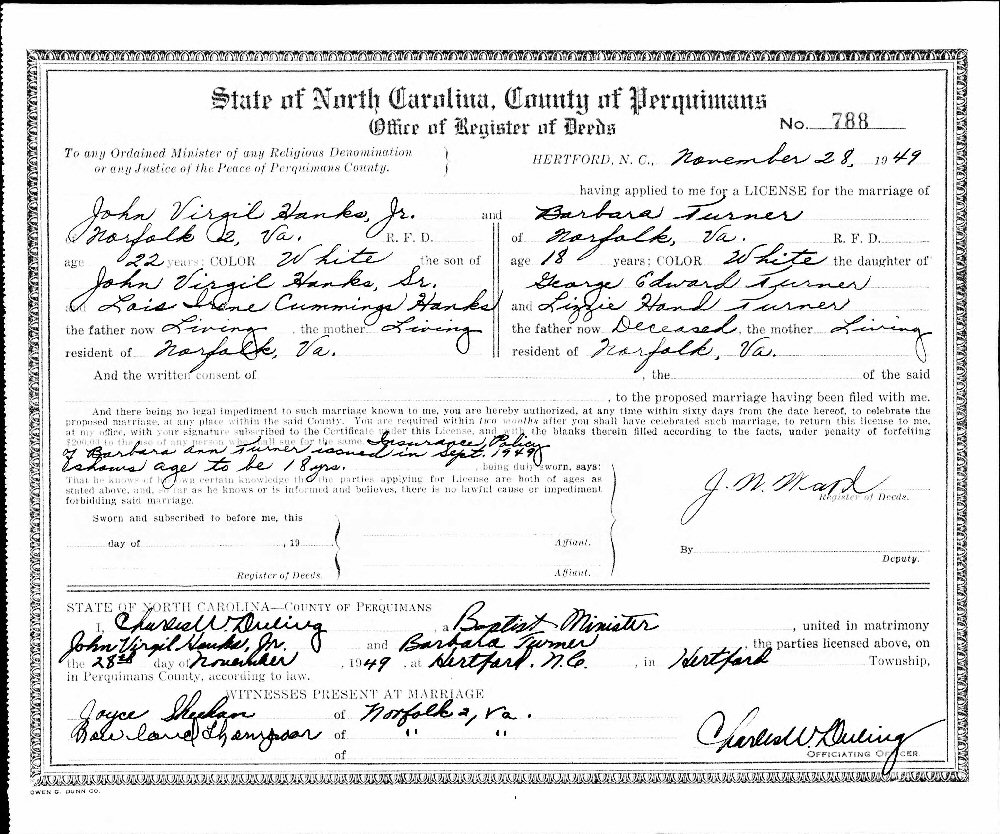 State of North Carolina, County of Perquimans
Office of Register of Deeds
No. 788
To any Ordained Minister of any Religious Denomination
or any Justice of the Peace of Perquimans County.
HERTFORD, N. C., November 28, 1949
having applied to me for a LICENSE for the marriage of
John Virgil Hanks, Jr. and Barbara Turner
of Norfolk 2, Va. R. F. D. of Norfolk, Va. R. F. D.
age 22 years; COLOR White the son of age 18 years; COLOR White the daughter of
John Virgil Hanks, Sr. George Edward Turner
and Lois Irene Cummings Hanks and Lizzie Hand Turner
the father now Living, the mother Living the father now Deceased, the mother Living
resident of Norfolk, Va. resident of Norfolk, Va.
And the written consent of , the of the said
, to the proposed marriage having been filed with me.
And there being no legal impediment to such marriage known to me, you are hereby authorized, at any time within sixty days from the date hereof, to celebrate the
proposed marriage, at any place within the said County. You are required within two months after you shall have celebrated such marriage, to return this license to me,
at my office, with your signature subscribed to the Certificate under this License, and with the blanks therein filled according to the facts, under penalty of forfeiting
$200.00 to the use of any person who shall sue for the same. Insurance Policy
of Barbara Ann Turner issued in Sept. 1949
shows age to be 18 yrs. , being duly sworn, says:
That he knows of his own certain knowledge that the parties applying for License are both of ages as
stated above, and, so far as he knows or is informed and believes, there is no lawful cause or impediment
forbidding said marriage.
J. W. Ward
Register of Deeds.
Sworn and subscribed to before me, this
day of , 19 Affiant.
By
Deputy.
Register of Deeds. Affiant.
STATE OF NORTH CAROLINA—COUNTY OF PERQUIMANS
I, Charles W. Duling, a Baptist Minister, united in matrimony
John Virgil Hanks, Jr. and Barbara Turner, the parties licensed above, on
the 28th day of November, 1949, at Hertford, N.C., in Hertford Township,
in Perquimans County, according to law.
WITNESSES PRESENT AT MARRIAGE
Joyce Sheehan of Norfolk 2, Va.
Thompson of " "
of
Charles W. Duling
OFFICIATING OFFICER
OWEN G. DUNN CO.